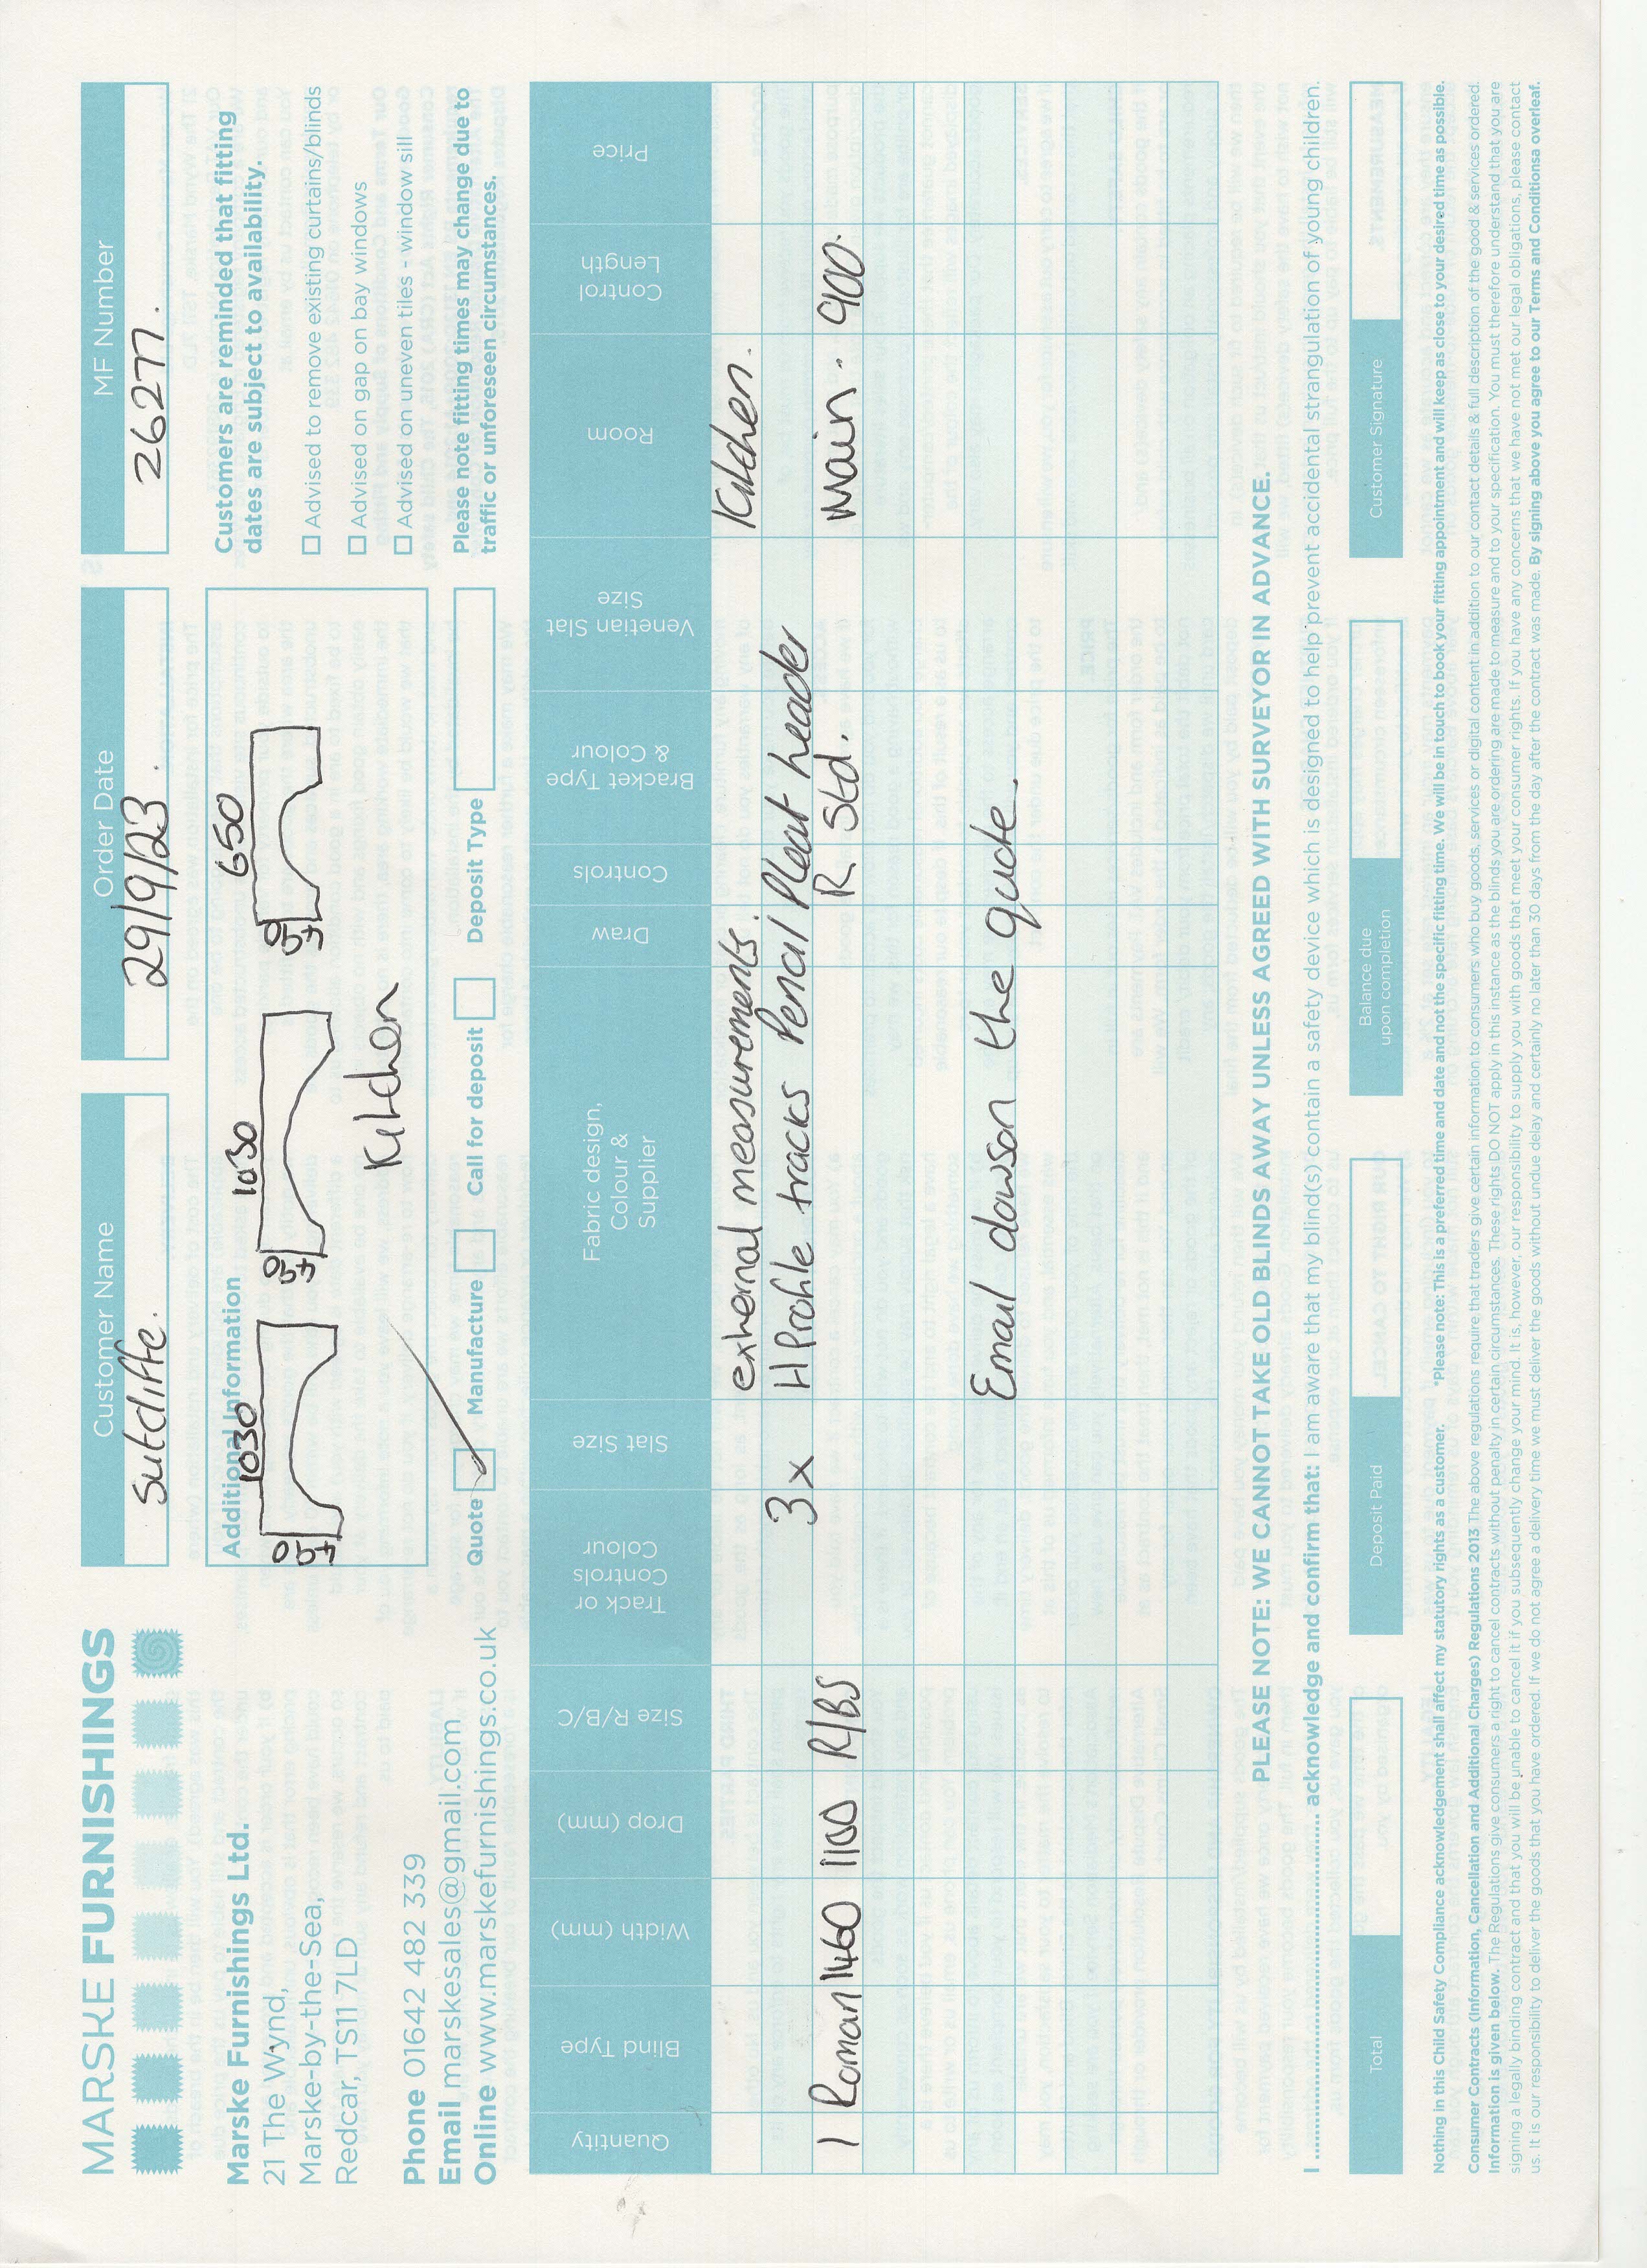 MARSKE FURNISHINGS
Marske Furnishings Ltd.
21 The Wynd,
Marske-by-the-Sea,
Redcar, TS11 7LD
Phone 01642 482 339
Email marskesales@gmail.com
Online www.marskefurnishings.co.uk
Customer Name
Sutcliffe.
Order Date
29/9/23.
MF Number
26277.
Additional Information
1030
450
1030
450
650
450
Kitchen
Quote
Manufacture
Call for deposit
Deposit Type
Customers are reminded that fitting
dates are subject to availability.
Advised to remove existing curtains/blinds
Advised on gap on bay windows
Advised on uneven tiles - window sill
Please note fitting times may change due to
traffic or unforeseen circumstances.
Quantity
Blind Type
Width (mm)
Drop (mm)
Size R/B/C
Track or
Controls
Colour
Slat Size
Fabric design,
Colour &
Supplier
Draw
Controls
Bracket Type
& Colour
Venetian Slat
Size
Room
Control
Length
Price
external measurements. Kitchen.
3x H Profile tracks Pencil Pleat header
1 Roman 1460 1100 R/BS R. Std. Main. 900.
Email dawson the quote.
PLEASE NOTE: WE CANNOT TAKE OLD BLINDS AWAY UNLESS AGREED WITH SURVEYOR IN ADVANCE.
I ........................ acknowledge and confirm that: I am aware that my blind(s) contain a safety device which is designed to help prevent accidental strangulation of young children.
Total
Deposit Paid
Balance due
upon completion
Customer Signature
Nothing in this Child Safety Compliance acknowledgement shall affect my statutory rights as a customer. *Please note: This is a preferred time and date and not the specific fitting time. We will be in touch to book your fitting appointment and will keep as close to your desired time as possible.
Consumer Contracts (Information, Cancellation and Additional Charges) Regulations 2013 The above regulations require that traders give certain information to consumers who buy goods, services or digital content in addition to our contact details & full description of the good & services ordered.
Information is given below. The Regulations give consumers a right to cancel contracts without penalty in certain circumstances. These rights DO NOT apply in this instance as the blinds you are ordering are made to measure and to your specification. You must therefore understand that you are
signing a legally binding contract and that you will be unable to cancel it if you subsequently change your mind. It is, however, our responsibility to supply you with goods that meet your consumer rights. If you have any concerns that we have not met our legal obligations, please contact
us. It is our responsibility to deliver the goods that you have ordered. If we do not agree a delivery time we must deliver the goods without undue delay and certainly no later than 30 days from the day after the contract was made. By signing above you agree to our Terms and Conditionsa overleaf.